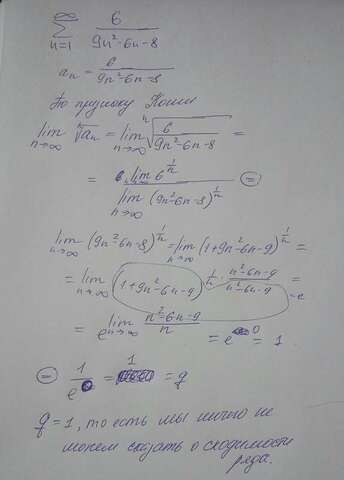 ∞ ∑ n=1 6 / (9n²-6n-8)
aₙ = 6 / (9n²-6n-8)
По признаку Коши
lim n→∞ ⁿ√aₙ = lim n→∞ ⁿ√(6 / (9n²-6n-8)) =
= lim 6^(1/n) / lim n→∞ (9n²-6n-8)^(1/n) ⊜
lim n→∞ (9n²-6n-8)^(1/n) = lim n→∞ (1+9n²-6n-9)^(1/n) =
= lim n→∞ (1+9n²-6n-9)^(1/n · (n²-6n-9)/(n²-6n-9)) =
= e^(lim n→∞ (n²-6n-9)/n) = e⁰ = 1
⊜ 1/e⁰ = 1 = q
q=1, то есть мы ничего не
можем сказать о сходимости
ряда.